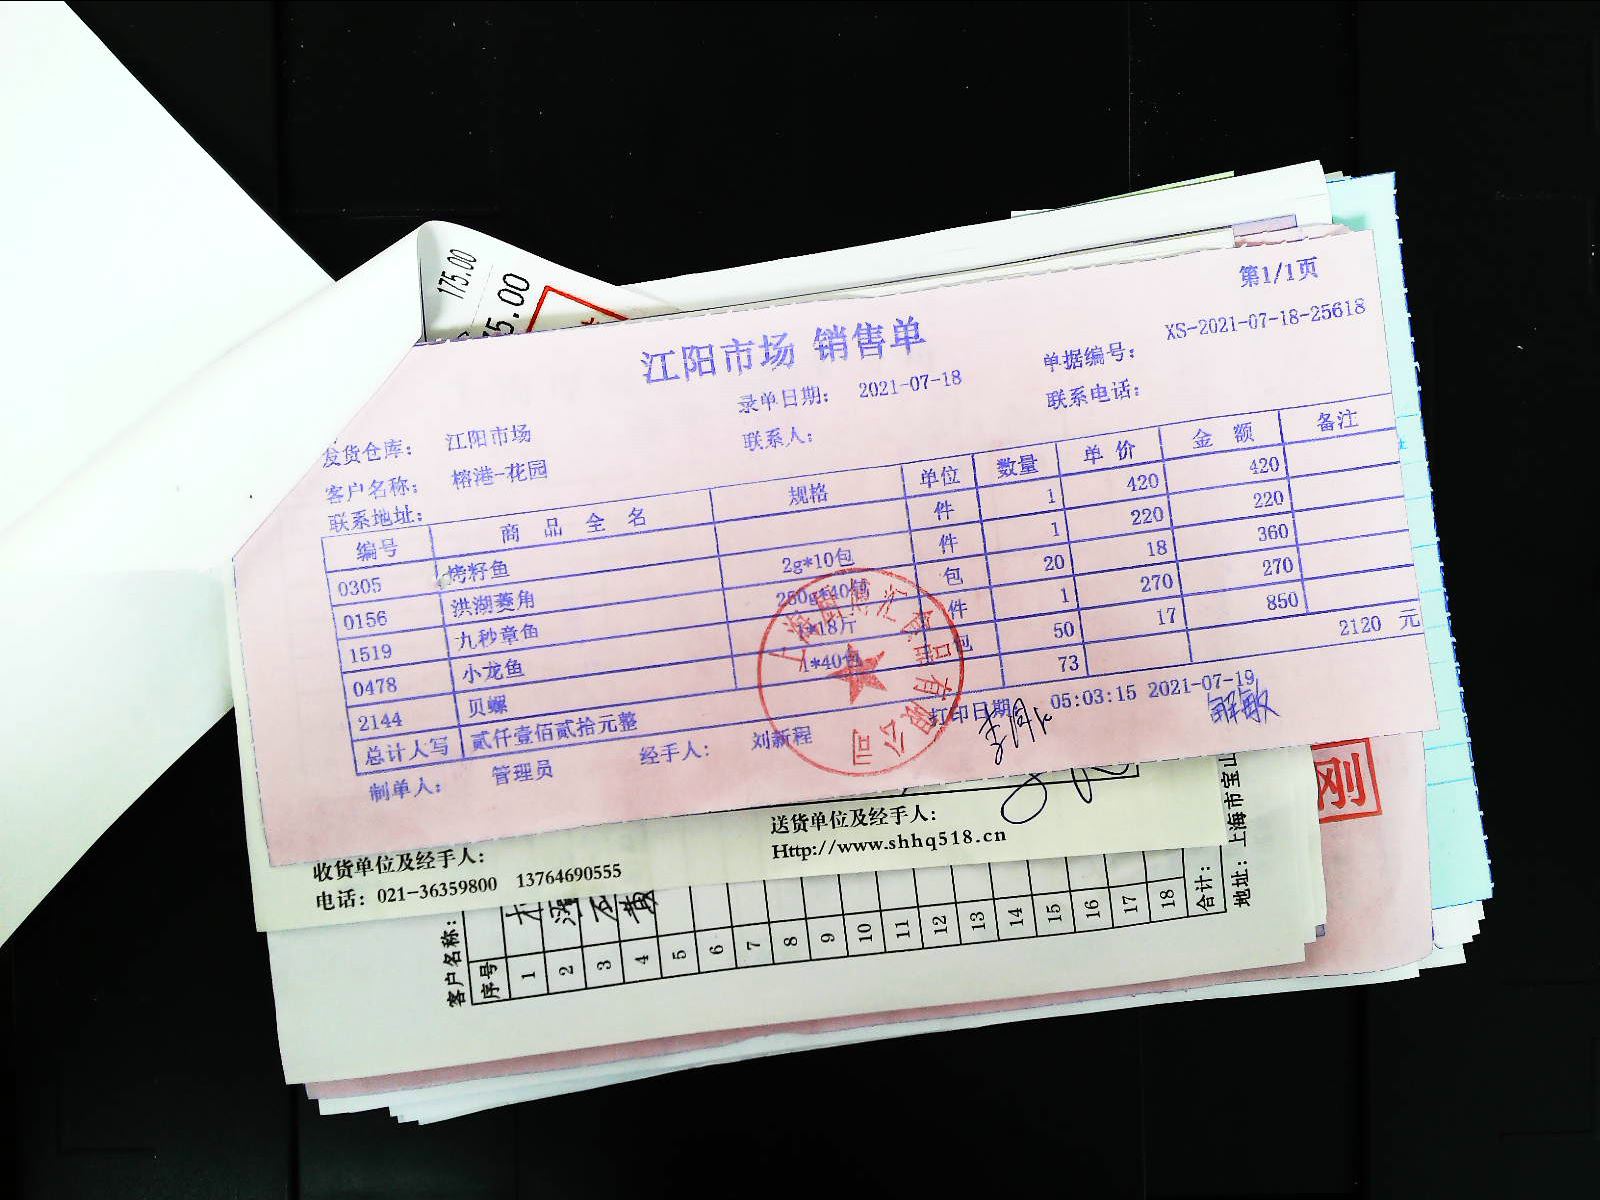 175.00
5.00
第1/1页
江阳市场 销售单
录单日期： 2021-07-18
单据编号： XS-2021-07-18-25618
发货仓库： 江阳市场
联系人：
联系电话：
客户名称： 榕港-花园
联系地址：
编号 商 品 全 名 规格 单位 数量 单 价 金 额 备注
0305 烤籽鱼 件 1 420 420
0156 洪湖菱角 2g*10包 件 1 220 220
1519 九秒章鱼 250g*40包 包 20 18 360
0478 小龙鱼 1*18斤 件 1 270 270
2144 贝螺 1*40包 包 50 17 850
总计人写 贰仟壹佰贰拾元整 73 2120 元
制单人： 管理员 经手人： 刘新程 打印日期 05:03:15 2021-07-19
收货单位及经手人：
送货单位及经手人：
电话：021-36359800 13764690555
Http://www.shhq518.cn
客户名称：
序号 1 2 3 4 5 6 7 8 9 10 11 12 13 14 15 16 17 18 合计：
地址：上海市宝山
刚